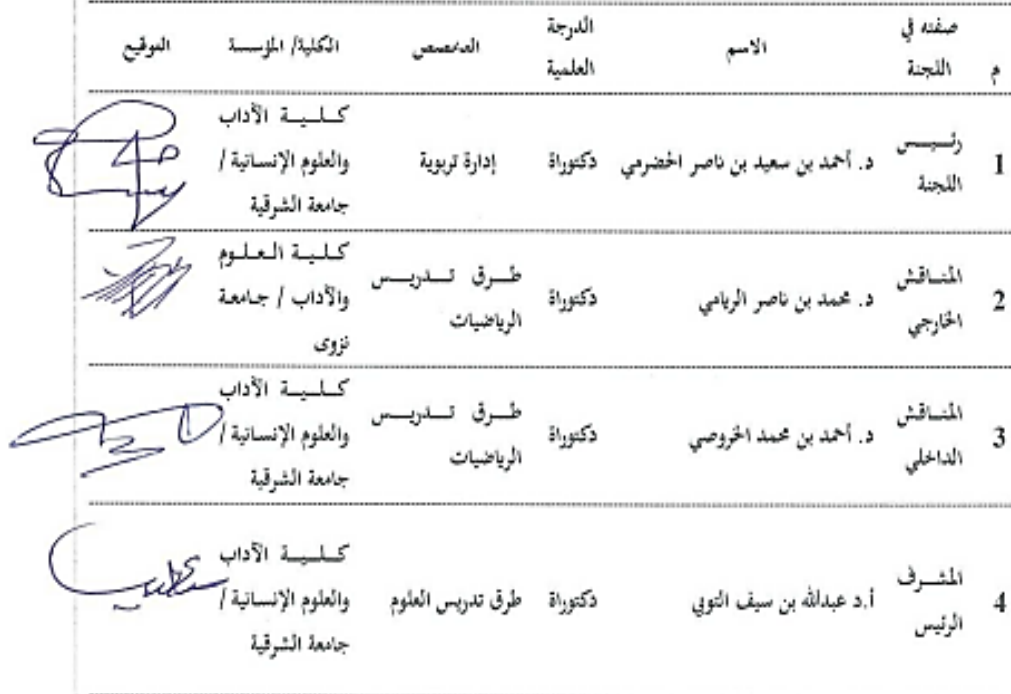 م صفته في اللجنة الاسم الدرجة العلمية التخصص الكلية/ المؤسسة التوقيع
1 رئيس اللجنة د. أحمد بن سعيد بن ناصر الحضرمي دكتوراة إدارة تربوية كلية الآداب والعلوم الإنسانية / جامعة الشرقية
2 المناقش الخارجي د. محمد بن ناصر الريامي دكتوراة طرق تدريس الرياضيات كلية العلوم والآداب / جامعة نزوى
3 المناقش الداخلي د. أحمد بن محمد الخروصي دكتوراة طرق تدريس الرياضيات كلية الآداب والعلوم الإنسانية / جامعة الشرقية
4 المشرف الرئيس أ.د عبدالله بن سيف التوبي دكتوراة طرق تدريس العلوم كلية الآداب والعلوم الإنسانية / جامعة الشرقية